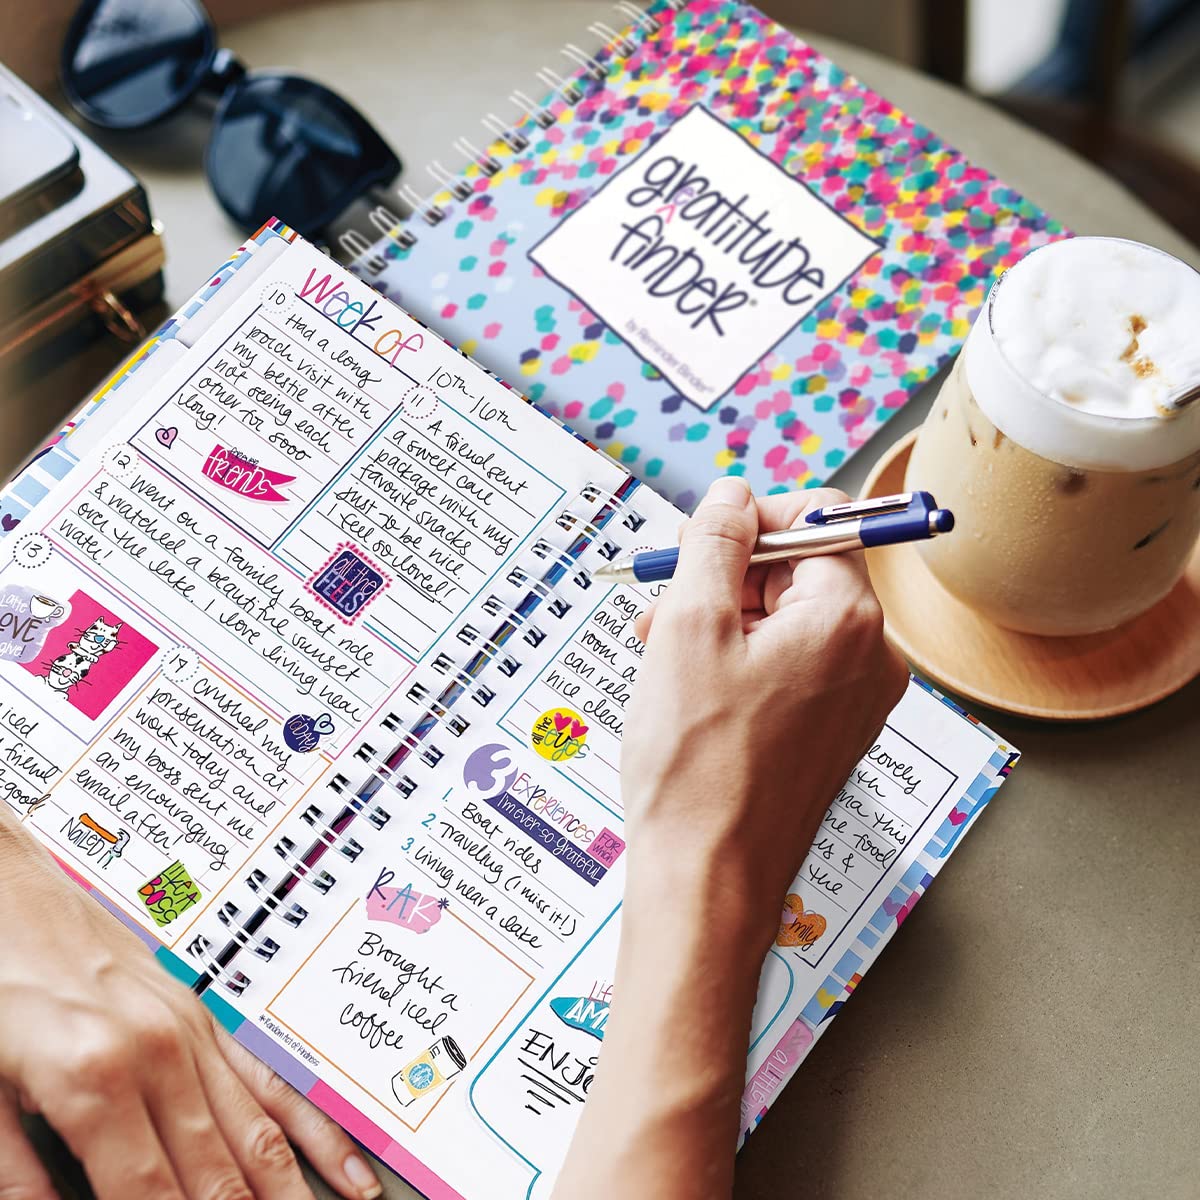 greatitude
finder®
by Reminder Binder®
Week of
10th-16th
10
Had a long
porch visit with
my bestie after
not seeing each
other for sooo
long!
friends
11
A friend sent
a sweet care
package with my
favourite snacks
just to be nice.
I feel so loved!
all the
FEELS
12
Went on a family boat ride
& watched a beautiful sunset
over the lake. I love living near
water!
13
Latte
LOVE
give!
iced
friend
good
14
Crushed my
presentation at
work today and
my boss sent me
an encouraging
email after!
NAILED
it
LIKE A
BOSS
and
room a
can rela
nice clean
all the
eyes
3 Experiences
I'm ever-so-grateful
FOR
which
1. Boat rides
2. Traveling (I miss it!)
3. Living near a lake
R.A.K*
Brought a
friend iced
coffee
*Random Act of Kindness
AM
ENJO
lovely
this
food
&
the
mily
a little